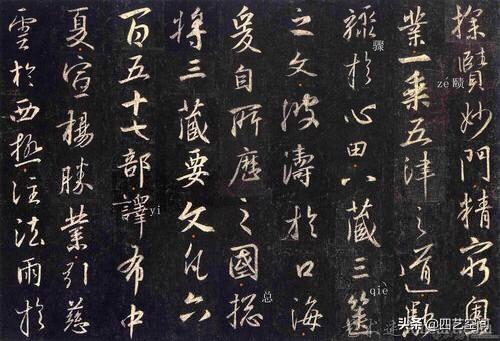 探賾妙門精窮奧
zé 赜
業一乘五律之道馳
驟於心田八藏三篋
骤
qiè
之文波濤於口海
爰自所歷之國揔
总
將三藏要文凡六
百五十七部譯布中
yi
夏宣楊勝業引慈
雲於西極注法雨於
头条 @四艺空间